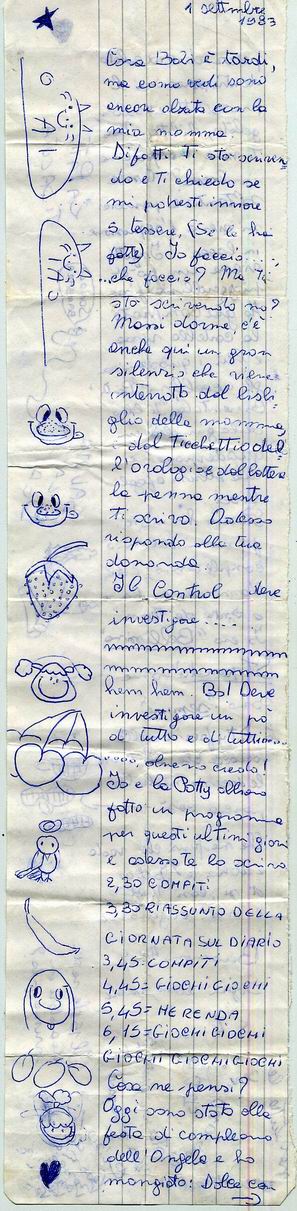 1 settembre
1983
Cara Bobi è tardi,
ma come vedi sono
ancora alzata con la
mia mamma.
Difatti ti sto scriven=
do e ti chiedo se
mi potresti inviare
5 tessere, (Se le hai
fatte) Io faccio...,
..che faccio? Ma ti
sto scrivendo no?
Massi dorme, c'è
anche qui un gran
silenzio che viene
interrotto dal bisbi=
glio della mamma,
dal ticchettio del
l'orologio e dal battere
la penna mentre
ti scrivo. Adesso
rispondo alla tua
domanda.
Il Control deve
investigare....
mmmmmmmmmmmmm
mmmmmmmmmmmmm
hem hem. Bo! Deve
investigare un pò
di tutto e di tutti.....
....., almeno credo!
Io e la Patty abbiamo
fatto un programma
per questi ultimi giorni
e adesso te lo scrivo
2,30 COMPITI
3,30 RIASSUNTO DELLA
GIORNATA SUL DIARIO
3,45= COMPITI
4,45= GIOCHI GIOCHI
5,45= MERENDA
6,15= GIOCHI GIOCHI
GIOCHI GIOCHI GIOCHI
Cosa ne pensi?
Oggi sono stata alla
festa di compleano
dell'Angela e ho
mangiato: Dolce con